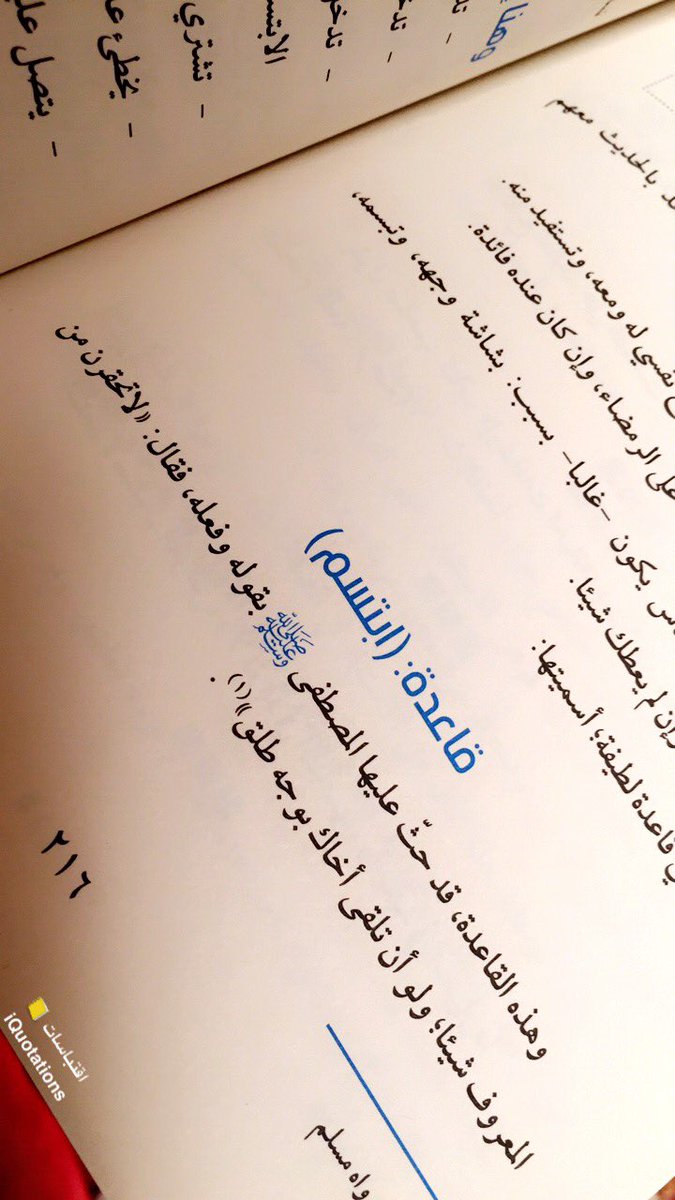 وهنا
تدخـ
تدخـ
الابتسـ
- تشتري
- يخطئ عـ
- يتصل عليـ
بالحديث معهم
نفسي له ومعه، وتستفيد منه.
على الرمضاء، وإن كان عنده فائدة.
يكون -غالبا- بسبب: بشاشة وجهه، وتبسمه،
وإن لم يعطك شيئا.
قاعدة لطيفة؛ أسميتها:
قاعدة: (ابتسم)
وهذه القاعدة، قد حثّ عليها المصطفى صلى الله عليه وسلم بقوله وفعله، فقال: «لا تحقرن من
المعروف شيئا؛ ولو أن تلقى أخاك بوجه طلق»(١).
واه مسلم
٢١٦
اقتباسات
iQuotations